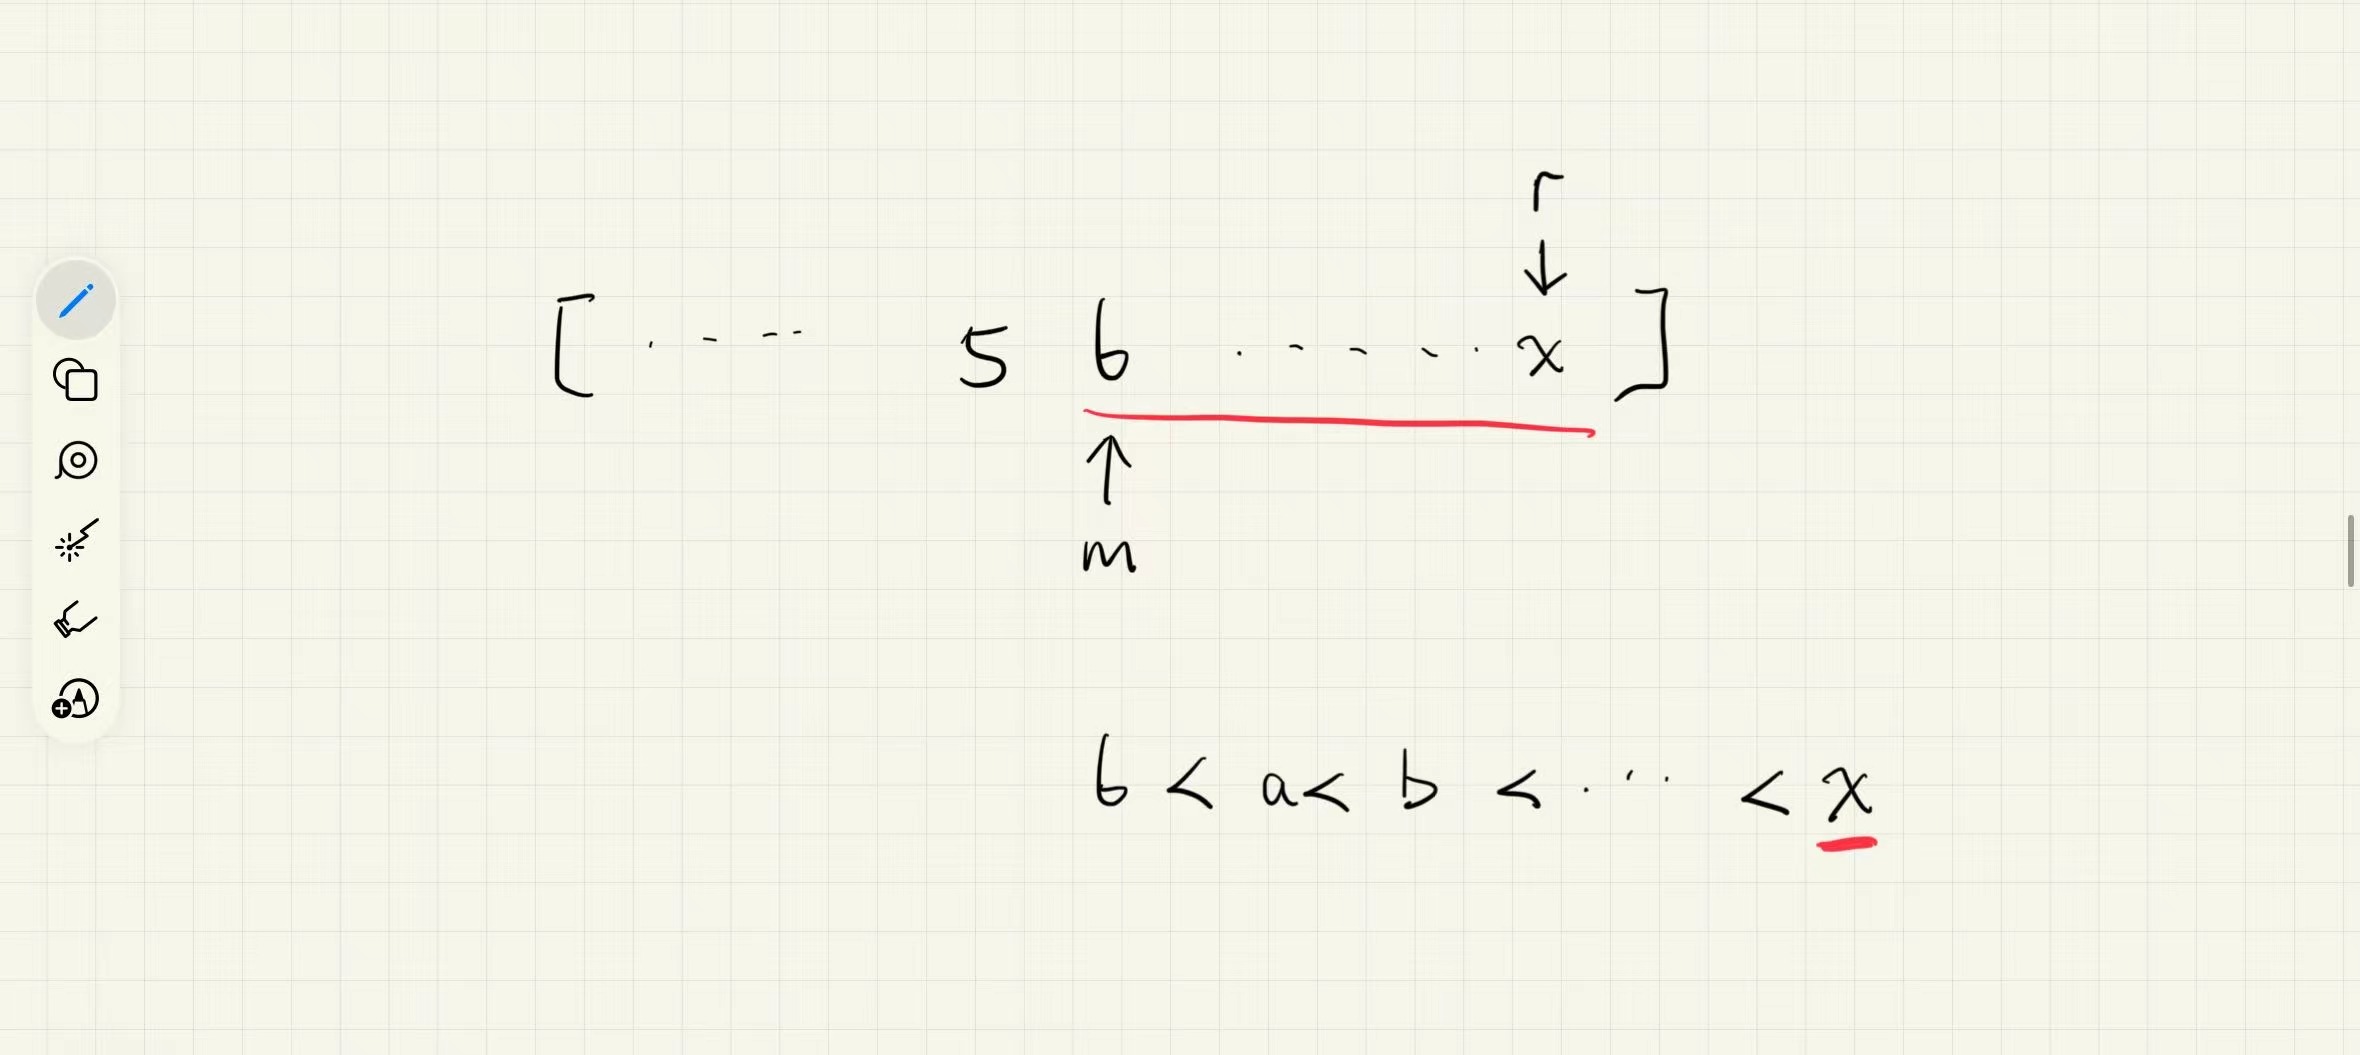 r
↓
[ . - -- 5 6 . - - - . x ]
↑
m
6 < a < b < . .. < x